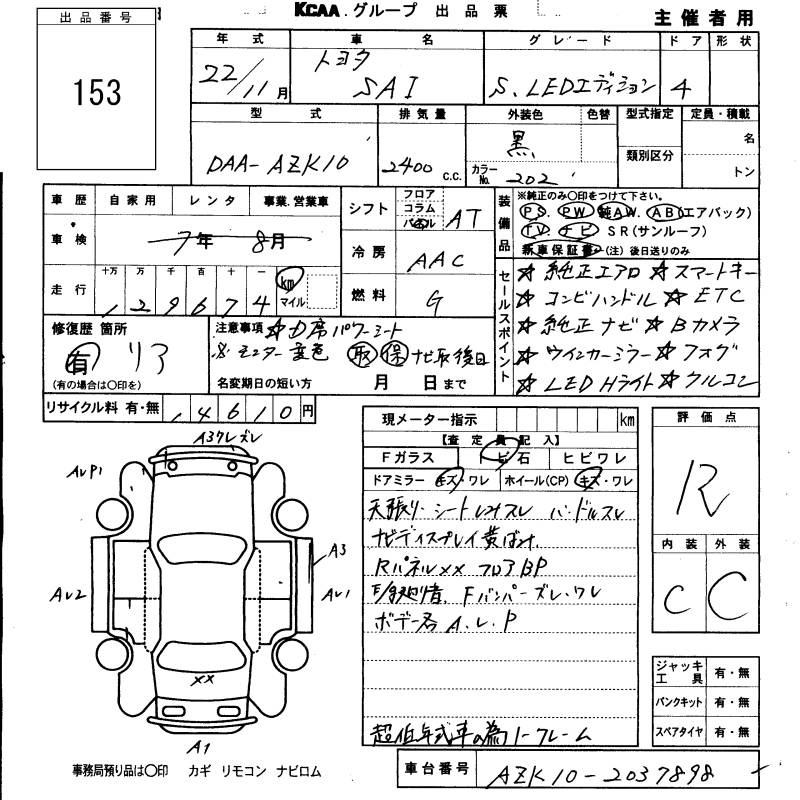 KCAA.グループ 出品票
主催者用
出品番号
153
年式 車名 グレード ドア 形状
22/11月 トヨタ SAI S.LEDエディション 4
型式 排気量 外装色 色替 型式指定 定員・積載
DAA-AZK10 2400c.c. 黒 カラーNo. 202 類別区分 名
トン
車歴 自家用 レンタ 事業.営業車
車検 7年 8月
走行 十万 万 千 百 十 一 km マイル
129674
シフト フロア コラム パネル AT
冷房 AAC
燃料 G
装備品
※純正のみ○印をつけて下さい。
PS. PW 純AW. AB(エアバック)
TV. ナビ SR(サンルーフ)
新車保証書 (注)後日送りのみ
セールスポイント
☆純正エアロ☆スマートキー
☆コンビハンドル☆ETC
☆純正ナビ☆Bカメラ
☆ウインカーミラー☆フォグ
☆LED Hライト☆クルコン
修復歴 箇所
有 リア
(有の場合は○印を)
注意事項 ☆D席パワーシート
※モニター変色 取 保 ナビ取後日
名変期日の短い方 月 日まで
リサイクル料 有・無 14610円
現メーター指示 km
【査定員記入】
Fガラス トビ石 ヒビワレ
ドアミラー キズ・ワレ ホイール(CP) キズ・ワレ
天張り.シートシミスレ ハンドルスレ
ナビディスプレイ黄ばみ.
Rパネルxx フロアBP
Fバンパーズレ.ワレ
ボデー各A.U.P
超低年式車の為ノークレーム
評価点
R
内装 外装
C C
ジャッキ工具 有・無
パンクキット 有・無
スペアタイヤ 有・無
A3クレズレ
AUP1
A3
AU2
AU1
xx
A1
事務局預り品は○印 カギ リモコン ナビロム
車台番号 AZK10-2037898